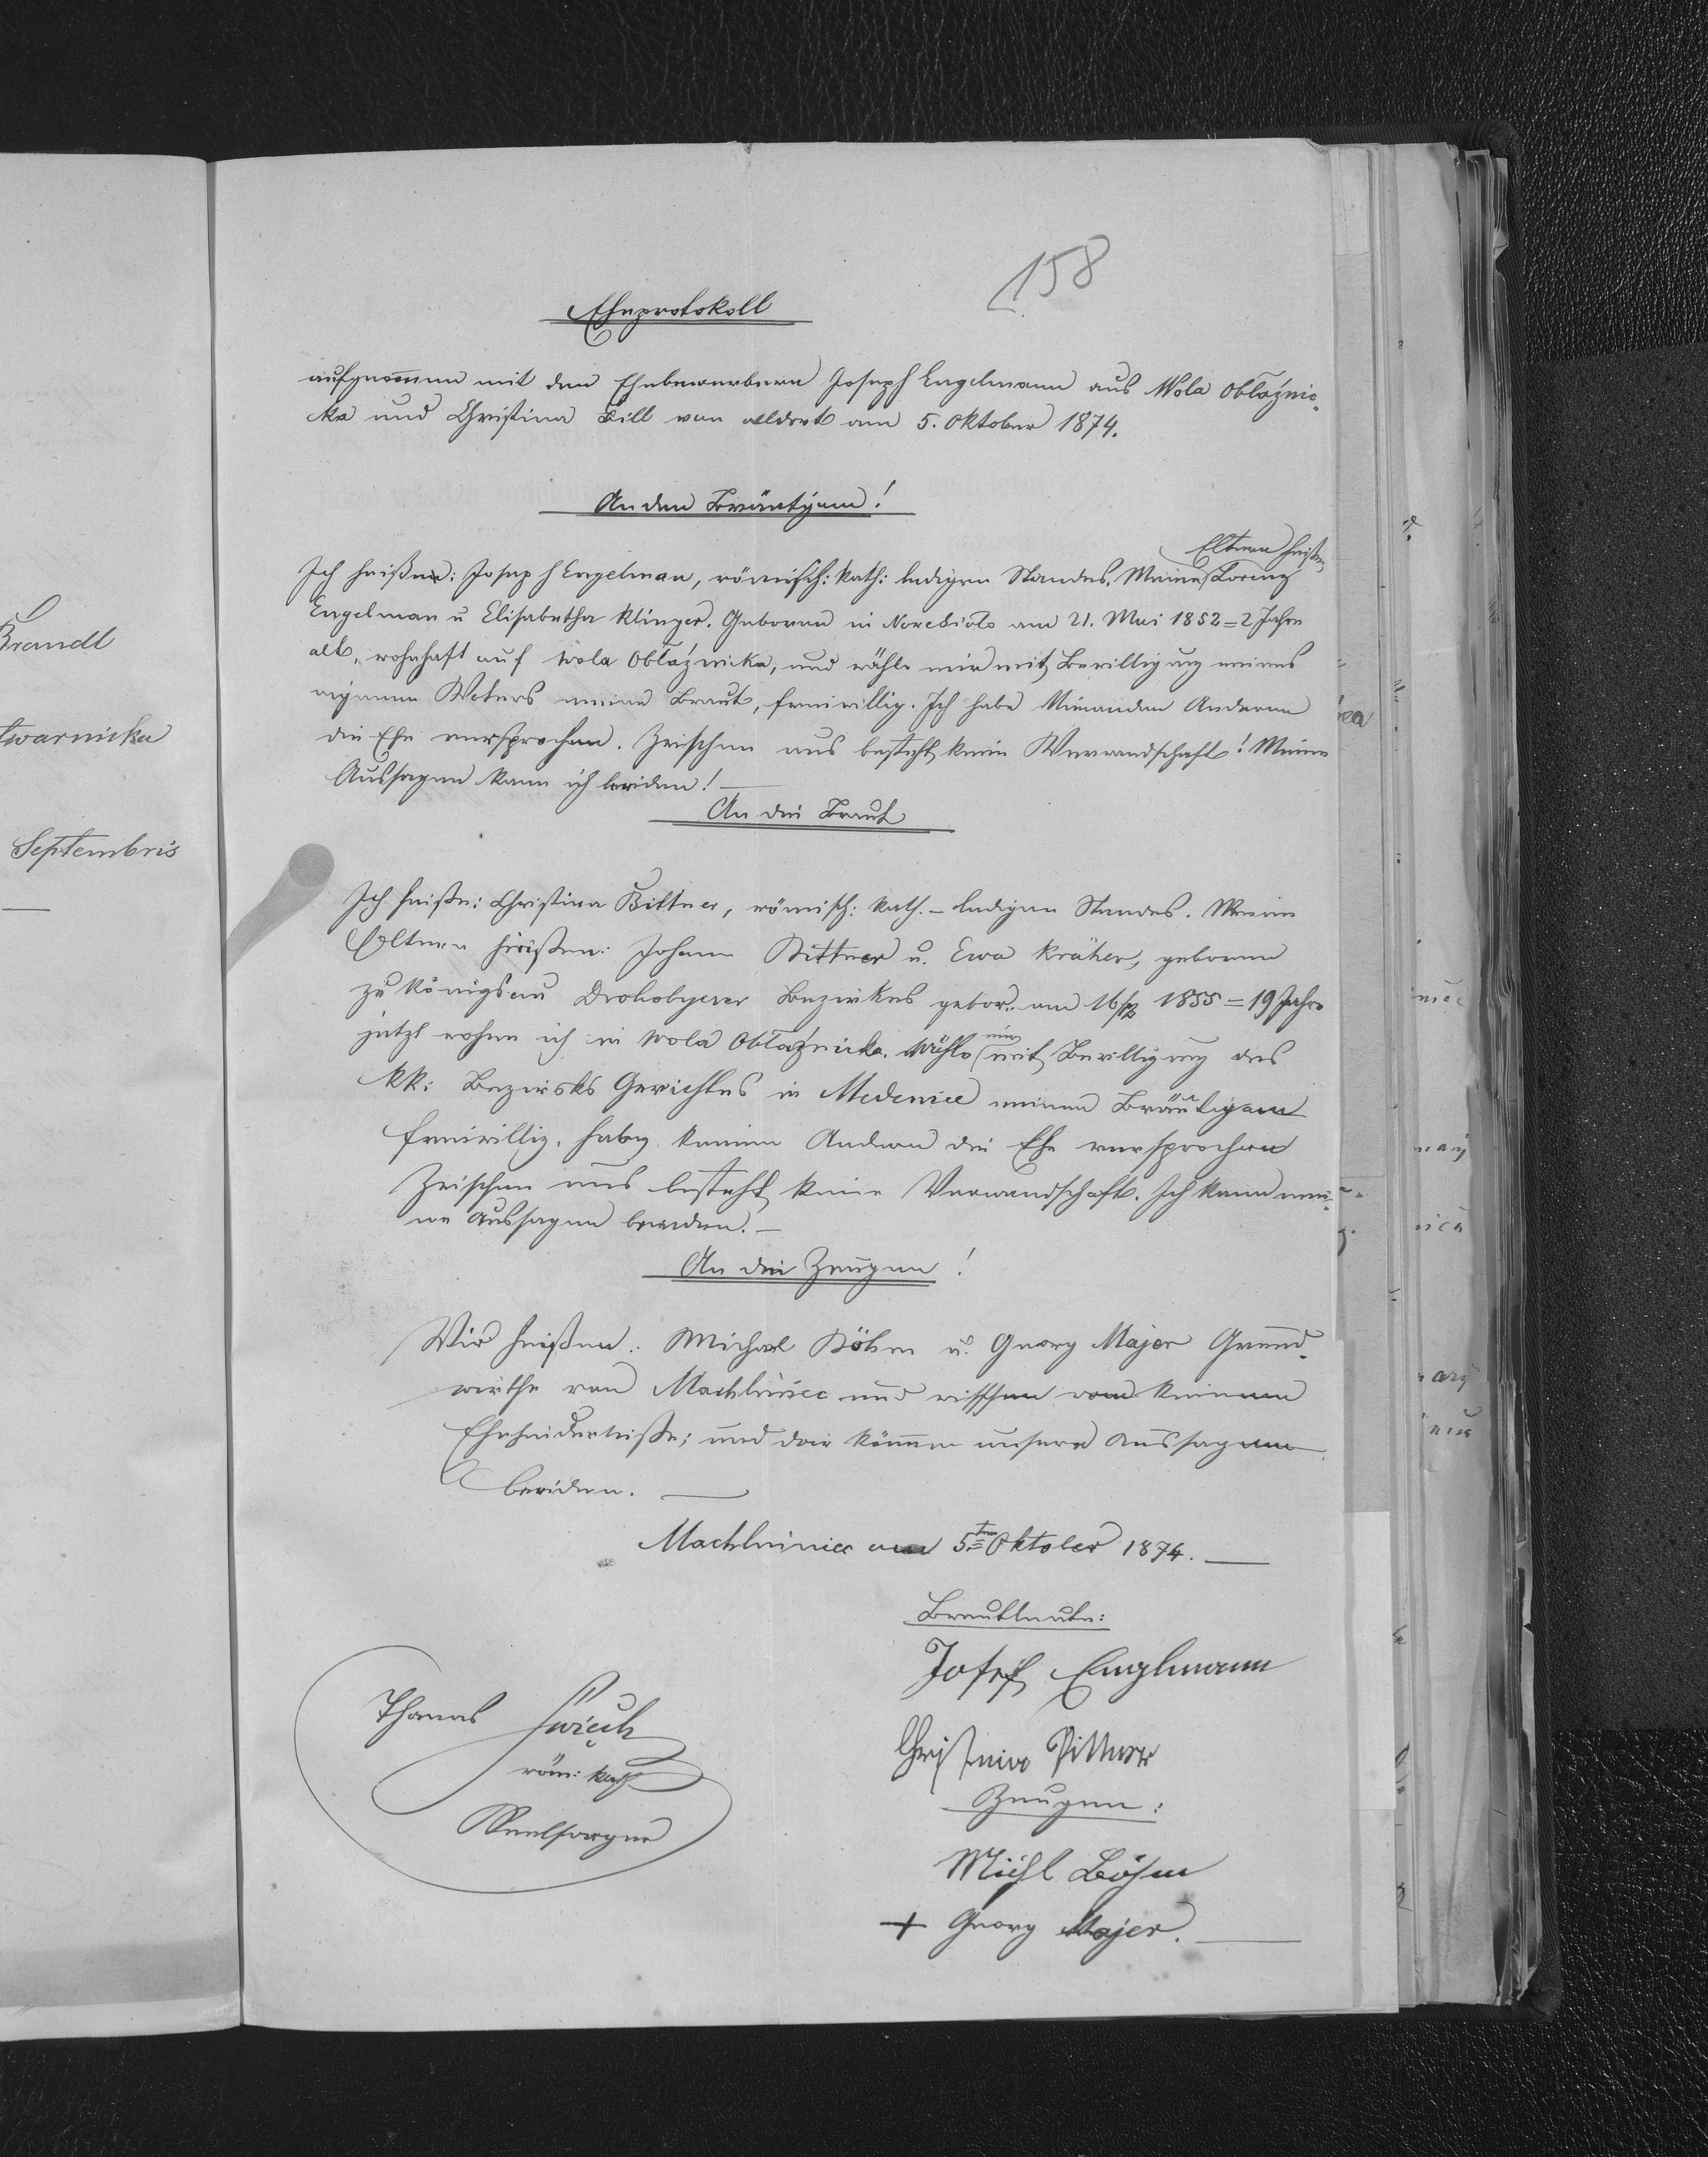 158
Eheprotokoll
aufgenomen mit den Ehebewerbern Joseph Engelmann aus Wola Obłaźnic=
ka und Christina Bill von aldort am 5. Oktober 1874.
An den Bräutigam!
Eltern heißen
Ich heiße: Joseph Engelman, römisch: kath: ledigen Standes. Meine Lorenz
Engelman u Elisabetha Klinger. Geboren in am 21. Mai 1852=2 Jahre
alt, wohnhaft auf Wola Obłaźnicka, und wähle mir mit Bewilligung meines
eigenen Vaters meine Braut, freiwillig. Ich habe Niemanden Anderen
die Ehe versprochen. Zwischen uns besteht keine Verwandschaft! Meine
Aussagen kann ich beeiden! —
An die Braut
Ich heiße: Christina Bittner, römisch: kath. – ledigen Standes. Meine
Eltern heißen: Johann Bittner u. Ewa Kräher, geboren
zu Königsau Drohobyczer Bezirkes gebor. am 1855=19 Jahre
jetzt wohne ich in Wola Obłaźnicka. Wähle mir mit Bewilligung des
kk: Bezirks Gerichtes in Medenice meinen Bräutigam
freiwillig, habe keinem Andern die Ehe versprochen
Zwischen uns besteht keine Verwandschaft. Ich kann mei=
ne Aussagen beeiden. —
An die Zeugen!
Wir heißen: Michael Böhm u. Georg Majer Grund=
wirthe von Machliniec und wissen von keinem
Ehehindernisse; und wir können unsere Aussagen
beeiden. —
Machliniec am 5ten Oktober 1874. —
Brautleute:
Josef Englmann
Thomas
Christina Pittner
röm: kath
Zeugen:
Seelsorger
Michl Böhm
+ Georg Majer. —
Brandl
Septembris